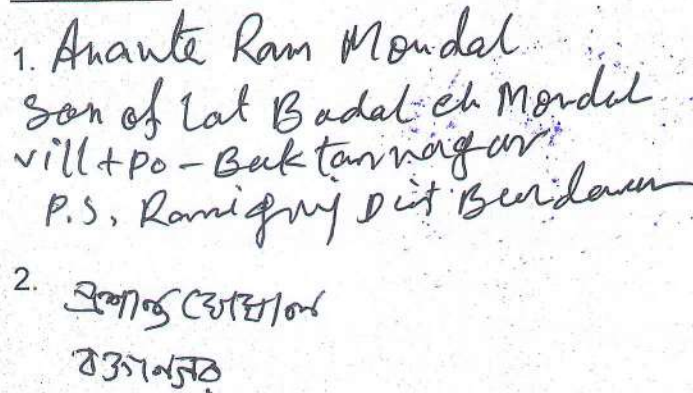 1. Ananta Ram Mondal
Son of Lat Badal ch Mondal
vill + po - Baktarnagar
P.S, Ranigunj Dist Burdawan
2. প্রশান্ত ঘোষাল
বক্তারনগর